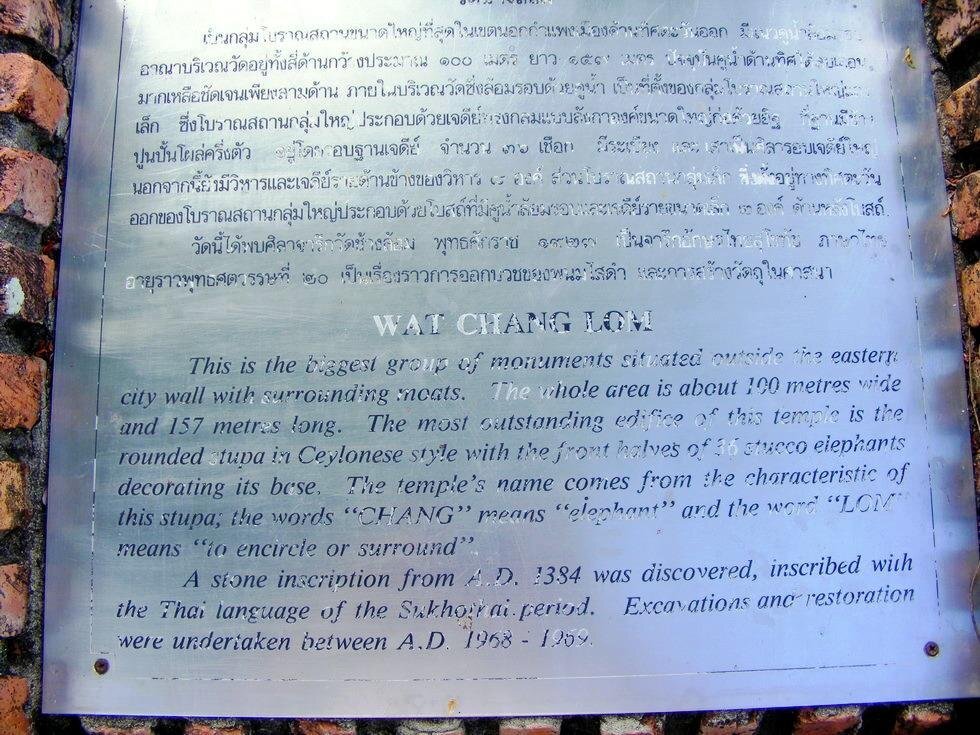 เป็นกลุ่มโบราณสถานขนาดใหญ่ที่สุดในเขตนอกกำแพงเมืองด้านทิศตะวันออก มีแนวคูน้ำ
อาณาบริเวณวัดอยู่ทั้งสี่ด้านกว้างประมาณ ๑๐๐ เมตร ยาว ๑๕๗ เมตร ปัจจุบันคูน้ำด้านทิศ
มากเหลือชัดเจนเพียงสามด้าน ภายในบริเวณวัดซึ่งล้อมรอบด้วยคูน้ำ เป็นที่ตั้งของกลุ่มโบราณสถานใหญ่และ
เล็ก ซึ่งโบราณสถานกลุ่มใหญ่ประกอบด้วยเจดีย์ทรงกลมแบบลังกาองค์ขนาดใหญ่ก่อด้วยอิฐ ที่ฐานมีช้าง
ปูนปั้นโผล่ครึ่งตัว อยู่โดยรอบฐานเจดีย์ จำนวน ๓๖ เชือก มีระเบียง และเสาศิลารอบเจดีย์ใหญ่
นอกจากนี้ยังมีวิหารและเจดีย์รายด้านข้างของวิหาร ๗ องค์ ส่วนโบราณสถานกลุ่มเล็ก ซึ่งตั้งอยู่ทางทิศตะวัน
ออกของโบราณสถานกลุ่มใหญ่ประกอบด้วยโบสถ์ที่มีคูน้ำล้อมรอบและเจดีย์รายขนาดเล็ก ๓ องค์ ด้านหลังโบสถ์
วัดนี้ได้พบศิลาจารึกวัดช้างล้อม พุทธศักราช ๑๙๒๗ เป็นจารึกอักษรไทยสุโขทัย ภาษาไทย
อายุราวพุทธศตวรรษที่ ๒๐ เป็นเรื่องราวการออกบวชของพนมไสดำ และการสร้างวัตถุในศาสนา
WAT CHANG LOM
This is the biggest group of monuments situated outside the eastern
city wall with surrounding moats. The whole area is about 100 metres wide
and 157 metres long. The most outstanding edifice of this temple is the
rounded stupa in Ceylonese style with the front halves of 36 stucco elephants
decorating its base. The temple's name comes from the characteristic of
this stupa; the words "CHANG" means "elephant" and the word "LOM"
means "to encircle or surround"
A stone inscription from A.D. 1384 was discovered, inscribed with
the Thai language of the Sukhothai period. Excavations and restoration
were undertaken between A.D. 1968 - 1969.